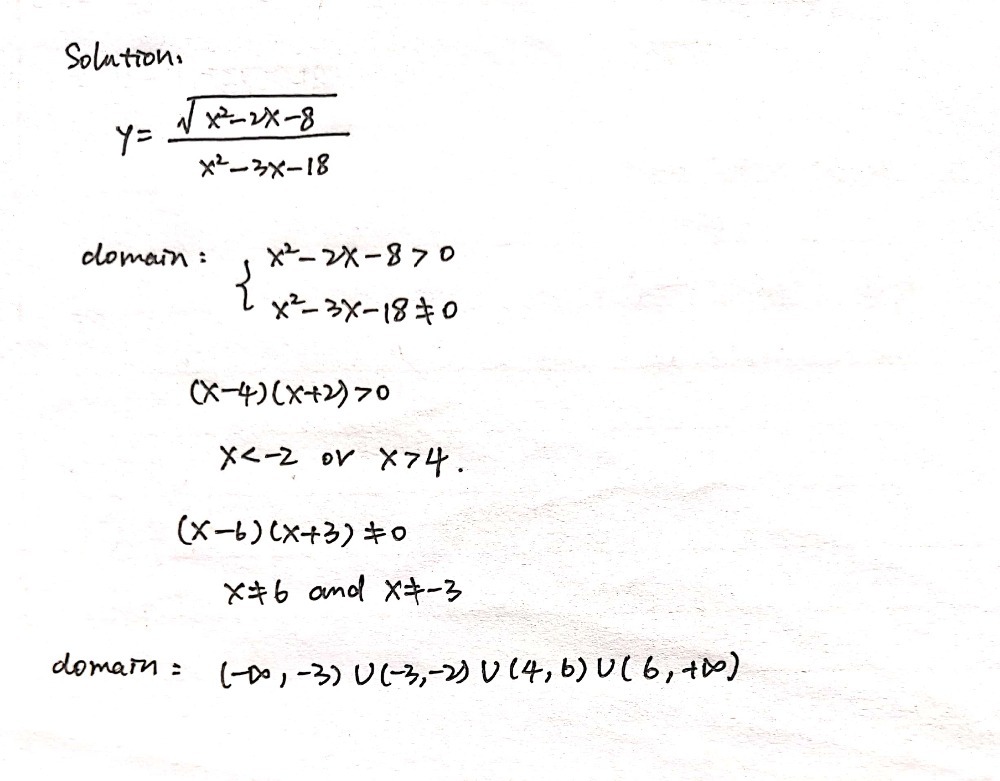 Solution.
y = √(x²-2x-8) / (x²-3x-18)
domain: { x²-2x-8>0
x²-3x-18≠0
(x-4)(x+2)>0
x<-2 or x>4.
(x-6)(x+3)≠0
x≠6 and x≠-3
domain: (-∞,-3)∪(-3,-2)∪(4,6)∪(6,+∞)